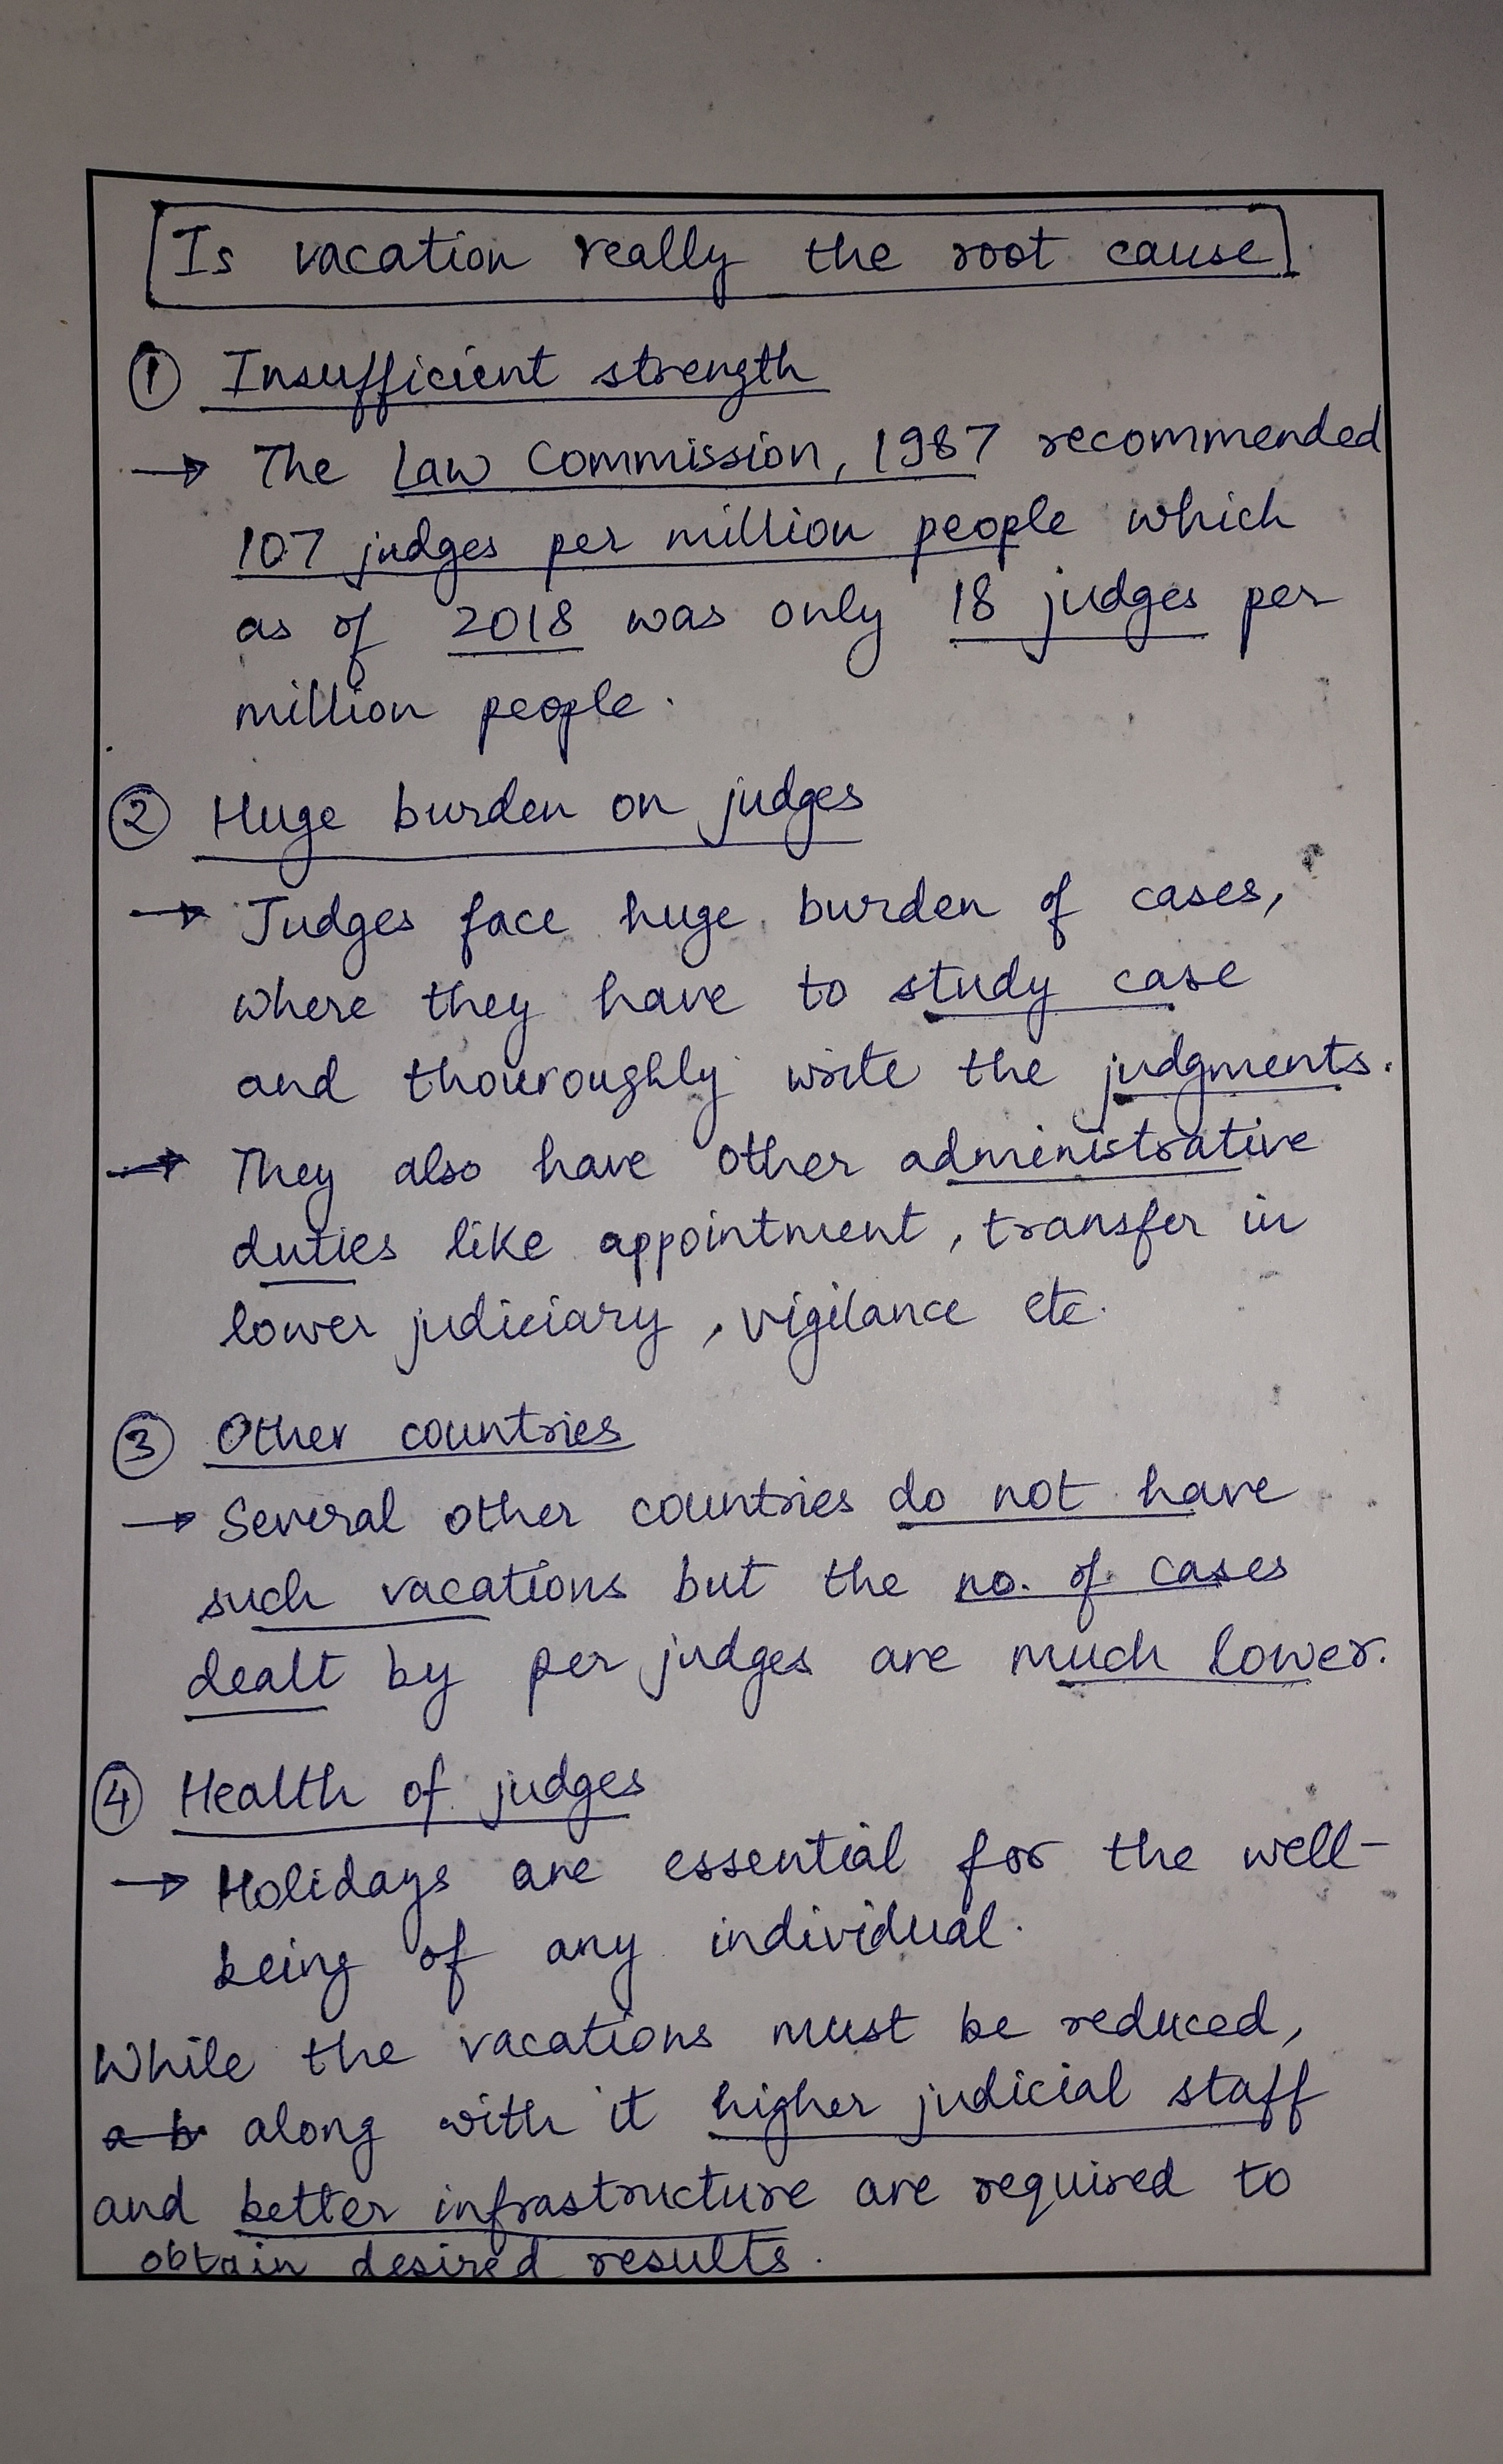 [Is vacation really the root cause]
① Insufficient strength
→ The Law Commission, 1987 recommended
107 judges per million people which
as of 2018 was only 18 judges per
million people.
② Huge burden on judges
→ Judges face huge burden of cases,
where they have to study case
and thouroughly write the judgments.
→ They also have other administrative
duties like appointment, transfer in
lower judiciary, vigilance etc.
③ Other countries
→ Several other countries do not have
such vacations but the no. of cases
dealt by per judges are much lower.
④ Health of judges
→ Holidays are essential for the well-
being of any individual.
While the vacations must be reduced,
a b along with it higher judicial staff
and better infrastructure are required to
obtain desired results.